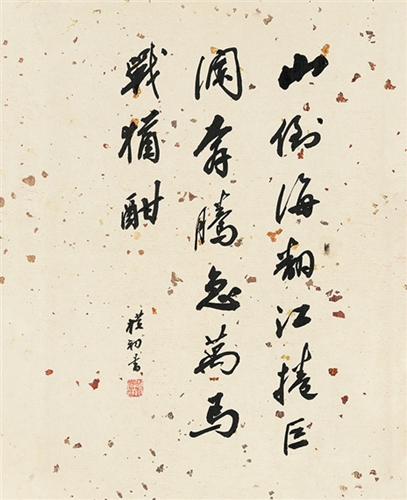 山倒海翻江捲巨
瀾奔騰急萬馬
戰猶酣
樸初書